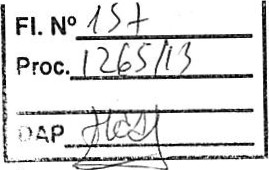 Fl. Nº 157
Proc. 1265/13
DAP